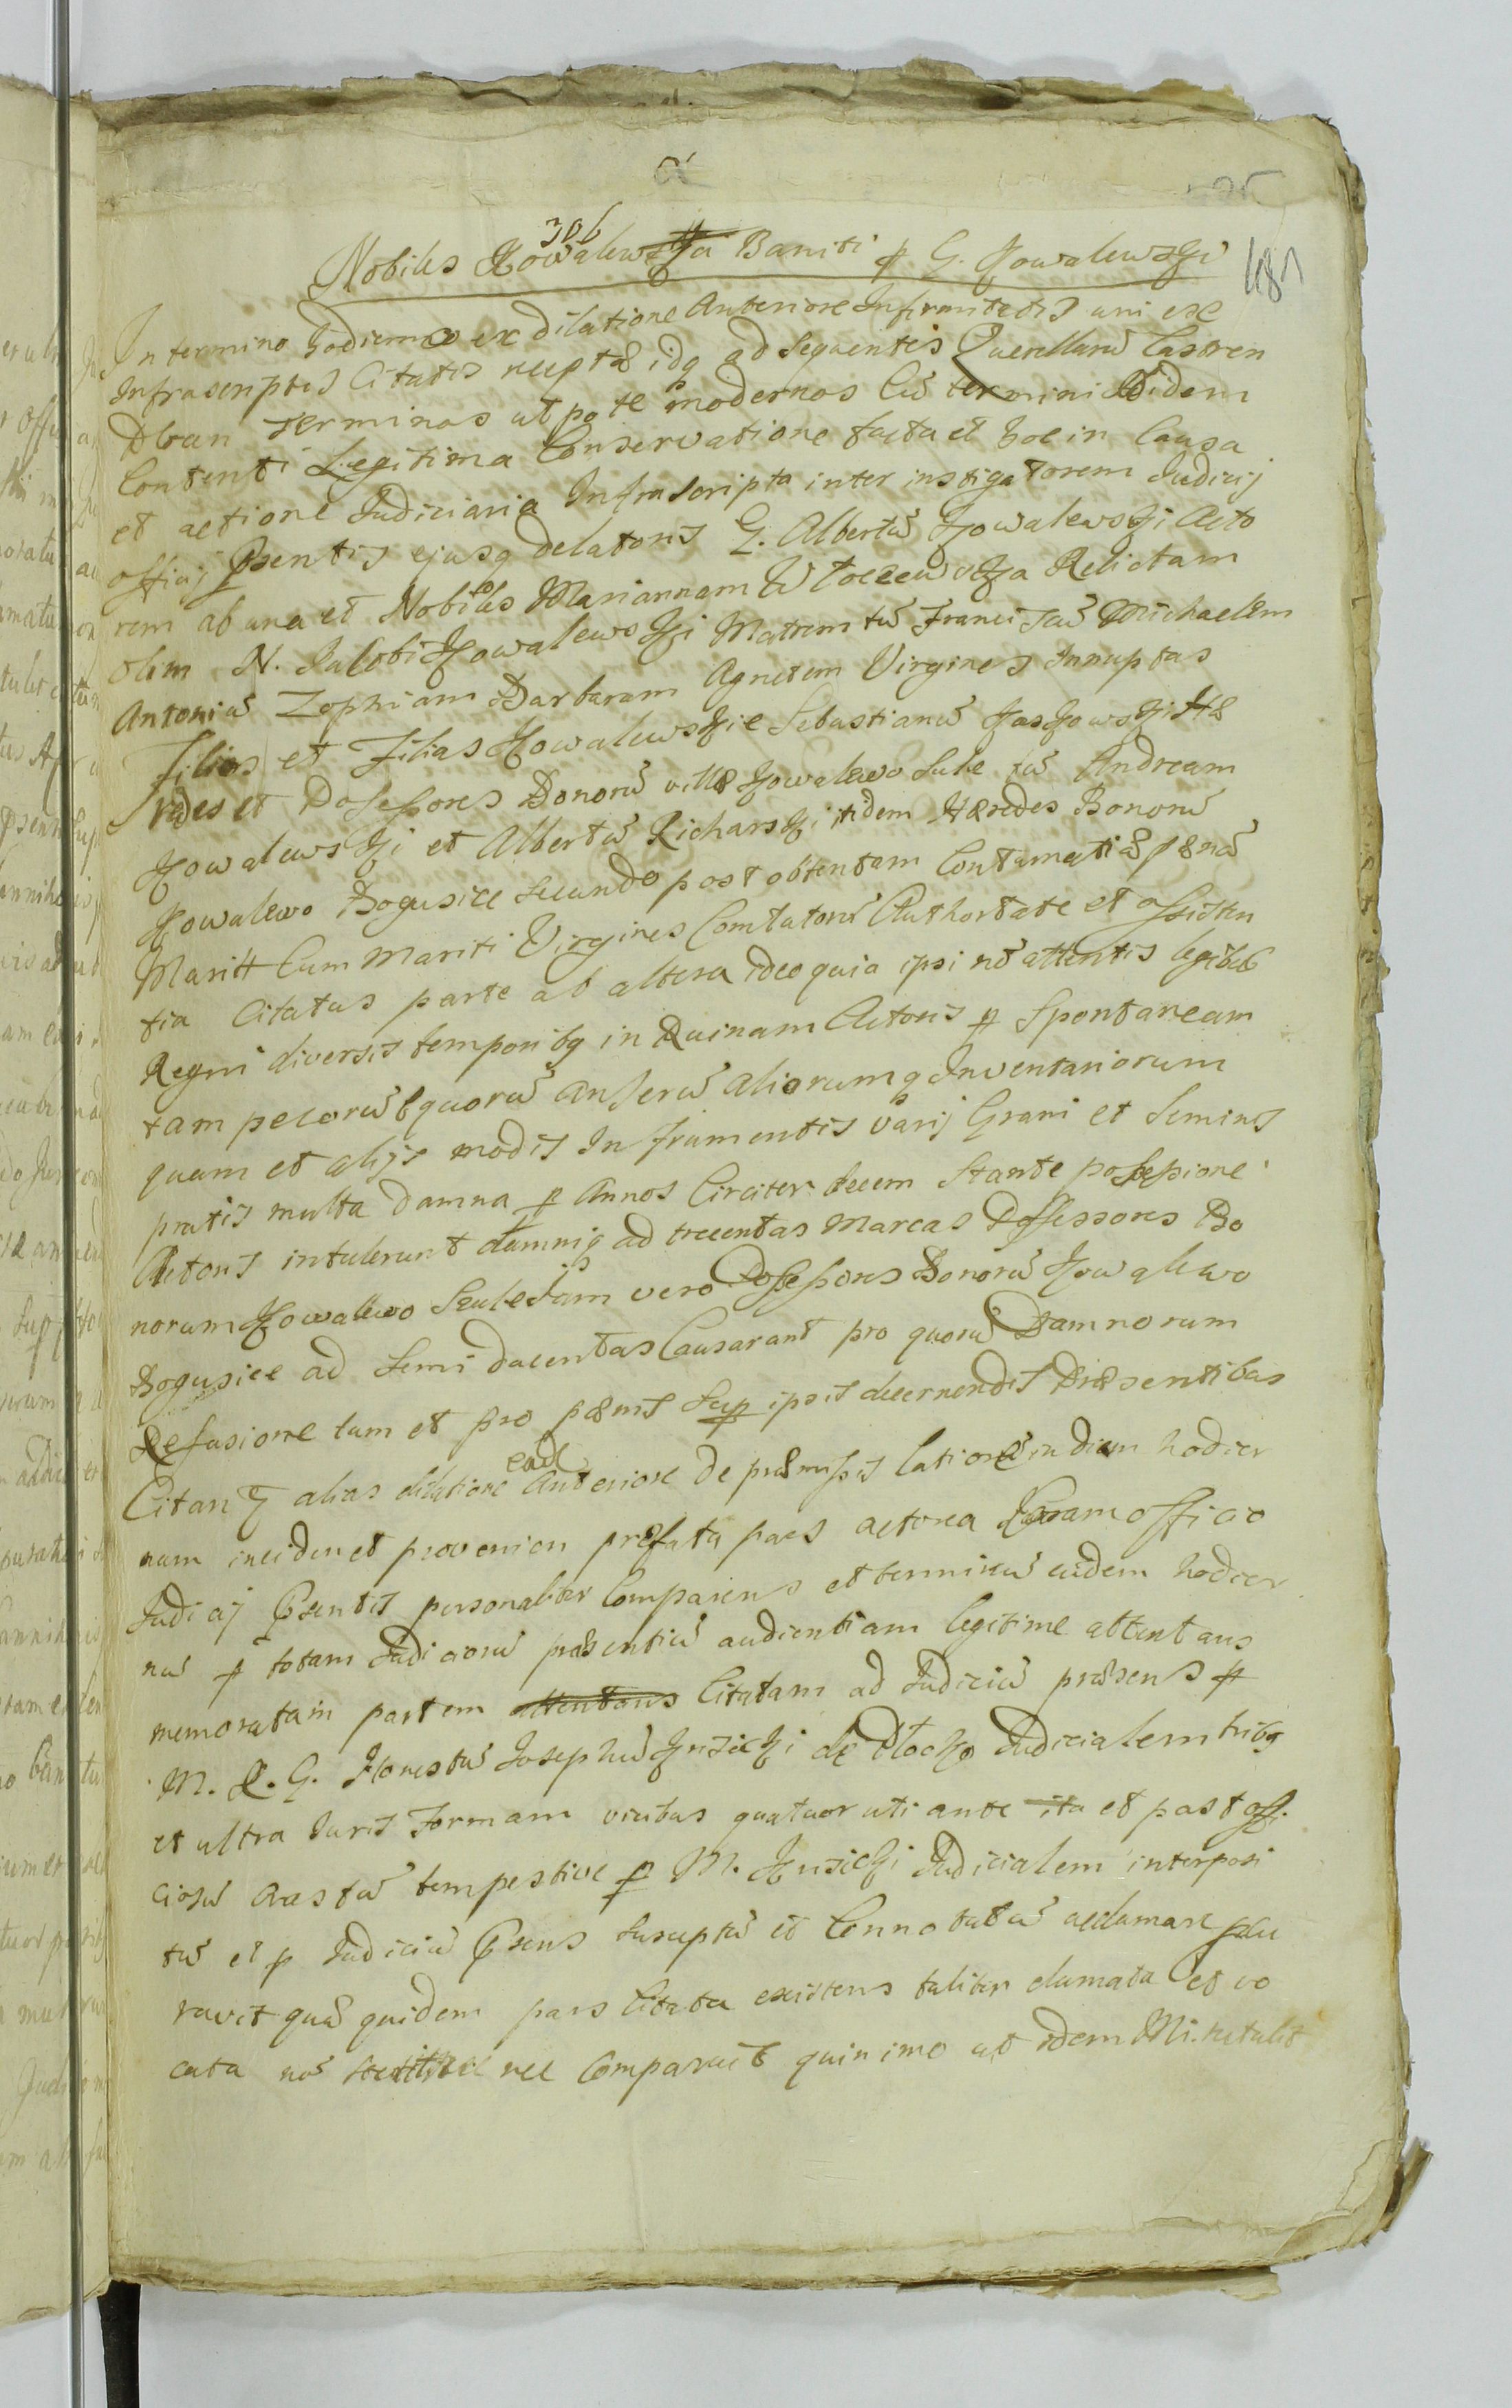 α
481
Nobiles Kowalewska Baniti p G. Kowalewski
In termino hodierno ex dilatione Anteriore Infirmitatis uni ex
Infrascriptis Citatis recepta idq ad sequentis Querellarū Castren
terminos utpote modernos Cū termini ibidem
Contenti Legitima Conservatione facta et hoc in Causa
et actione Judiciaria Infrascripta inter instigatorem Judicij
officij Psentis ejusq delatoris G. Albertū Kowalewski Acto
rem ab una et Nobiles Mariannam Relictam
olim N. Jacobi Kowalewski Matrem tū Franciscū Michaelem
Antoniū Zophiam Barbaram Agnetem Virgines Innuptas
Filios et Filias Kowalewskie Sebastianū Kaskowski Hæ
redes et Possessores Bonorū villæ Kowalewo tū Andream
Kowalewski et Albertū Richarski itidem Hæredes Bonorū
Kowalewo Bogusice secundo post obtentam Contumatiæ pænā
Maritt Cum Mariti Virgines Authoritate et assisten
tia Citatus parte ab altera ideo quia ipsi nō attentis legibus
Regni diversis temporibq in Ruinam Actoris p Spontaneam
tam pecorū Equorū Anserū Aliorumq Inventariorum
quam et alijs modis In frumentis varij Grani et seminis
pratis multa damna p Annos Circiter decem Stante possessione
Actoris intulerunt damniq ad trecentas Marcas Possessores Bo
norum Kowalewo vero Possessores Bonorū Kowalewo
Bogusice ad semi ducentas Causarant pro quorū Damnorum
Refusione tum et pro pænis sup ipsis decernendis Præsentibus
Citan alias dilatione ead Anteriore de præmissis latiore in diem hodier
num inciden et provenien præfata pars actorea Coram officio
Judicij Psentis personaliter Comparens et terminū eūdem hodier
nū p totam Judiciorū præsentiū audientiam legitime attentans
memoratam partem attentans Citatam ad Judiciū præsens p
M. R. G. Honestū Josephū Kruzicki de Plocko Judicialem tribq
et ultra Juris Formam vicibus quatuor uti ante ita et post offi.
ciosū tempestive p M. Kruzicki Judicialem interposi
tū et p Judiciū Psens susceptū et Connotatū acclamare
ravit quæ quidem pars Citata existens taliter clamata et vo
cata nō stetit nec Comparuit quin imo ut idem Mi. retulit